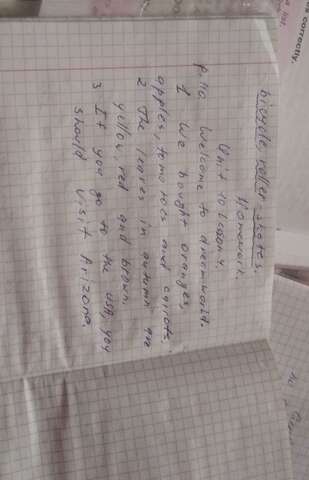 bicycle, roller-skates.
Homework.
Unit 10 lesson 4.
p. 110 Welcome to dreamworld.
1 We bought oranges,
apples, tomatoes and carrots.
2 The leaves in autumn are
yellow, red and brown.
3 If you go to the USA, you
should visit Arizona.
s correctly.